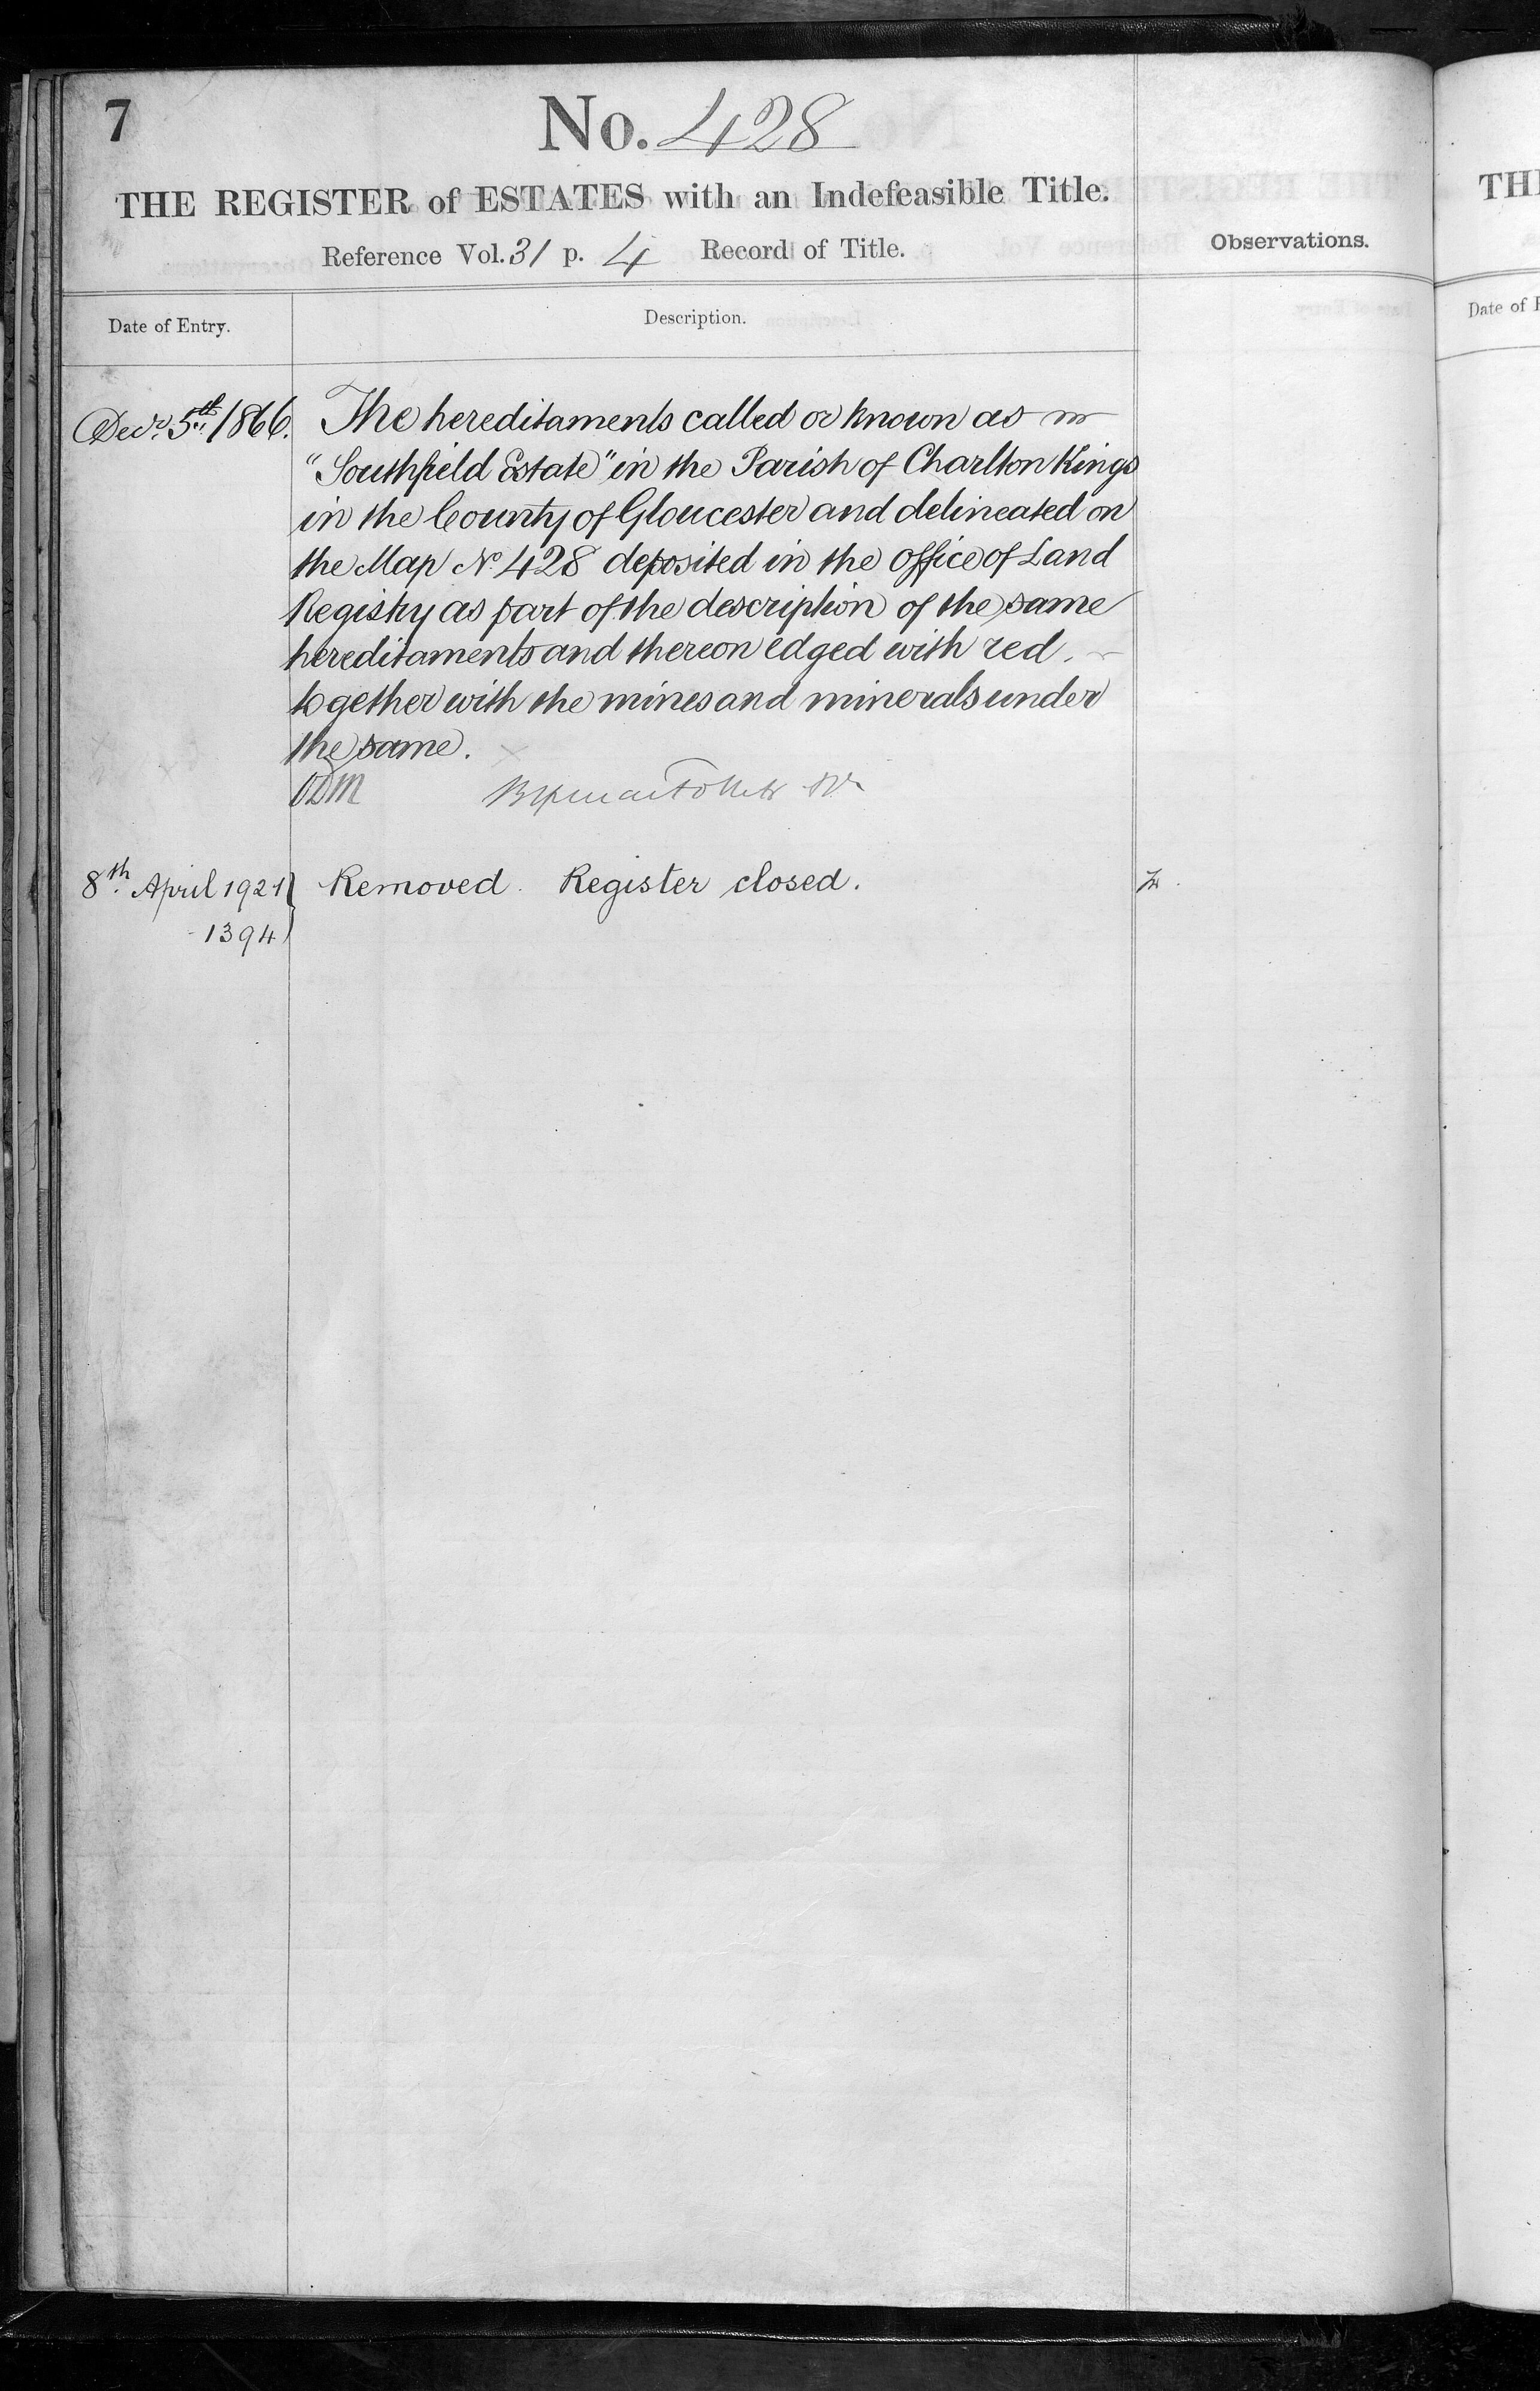 7
No. 428
THE REGISTER of ESTATES with an Indefeasible Title.
Reference Vol. 31 p. 4 Record of Title.
Observations.
Date of Entry.
Description.
Decr. 5th 1866.
The hereditaments called or known as
"Southfield Estate" in the Parish of Charlton Kings
in the County of Gloucester and delineated on
the Map No. 428 deposited in the office of Land
Registry as part of the description of the same
hereditaments and thereon edged with red.
together with the mines and minerals under
the same.
8th April 1921
1394
Removed. Register closed.
TH
Date of